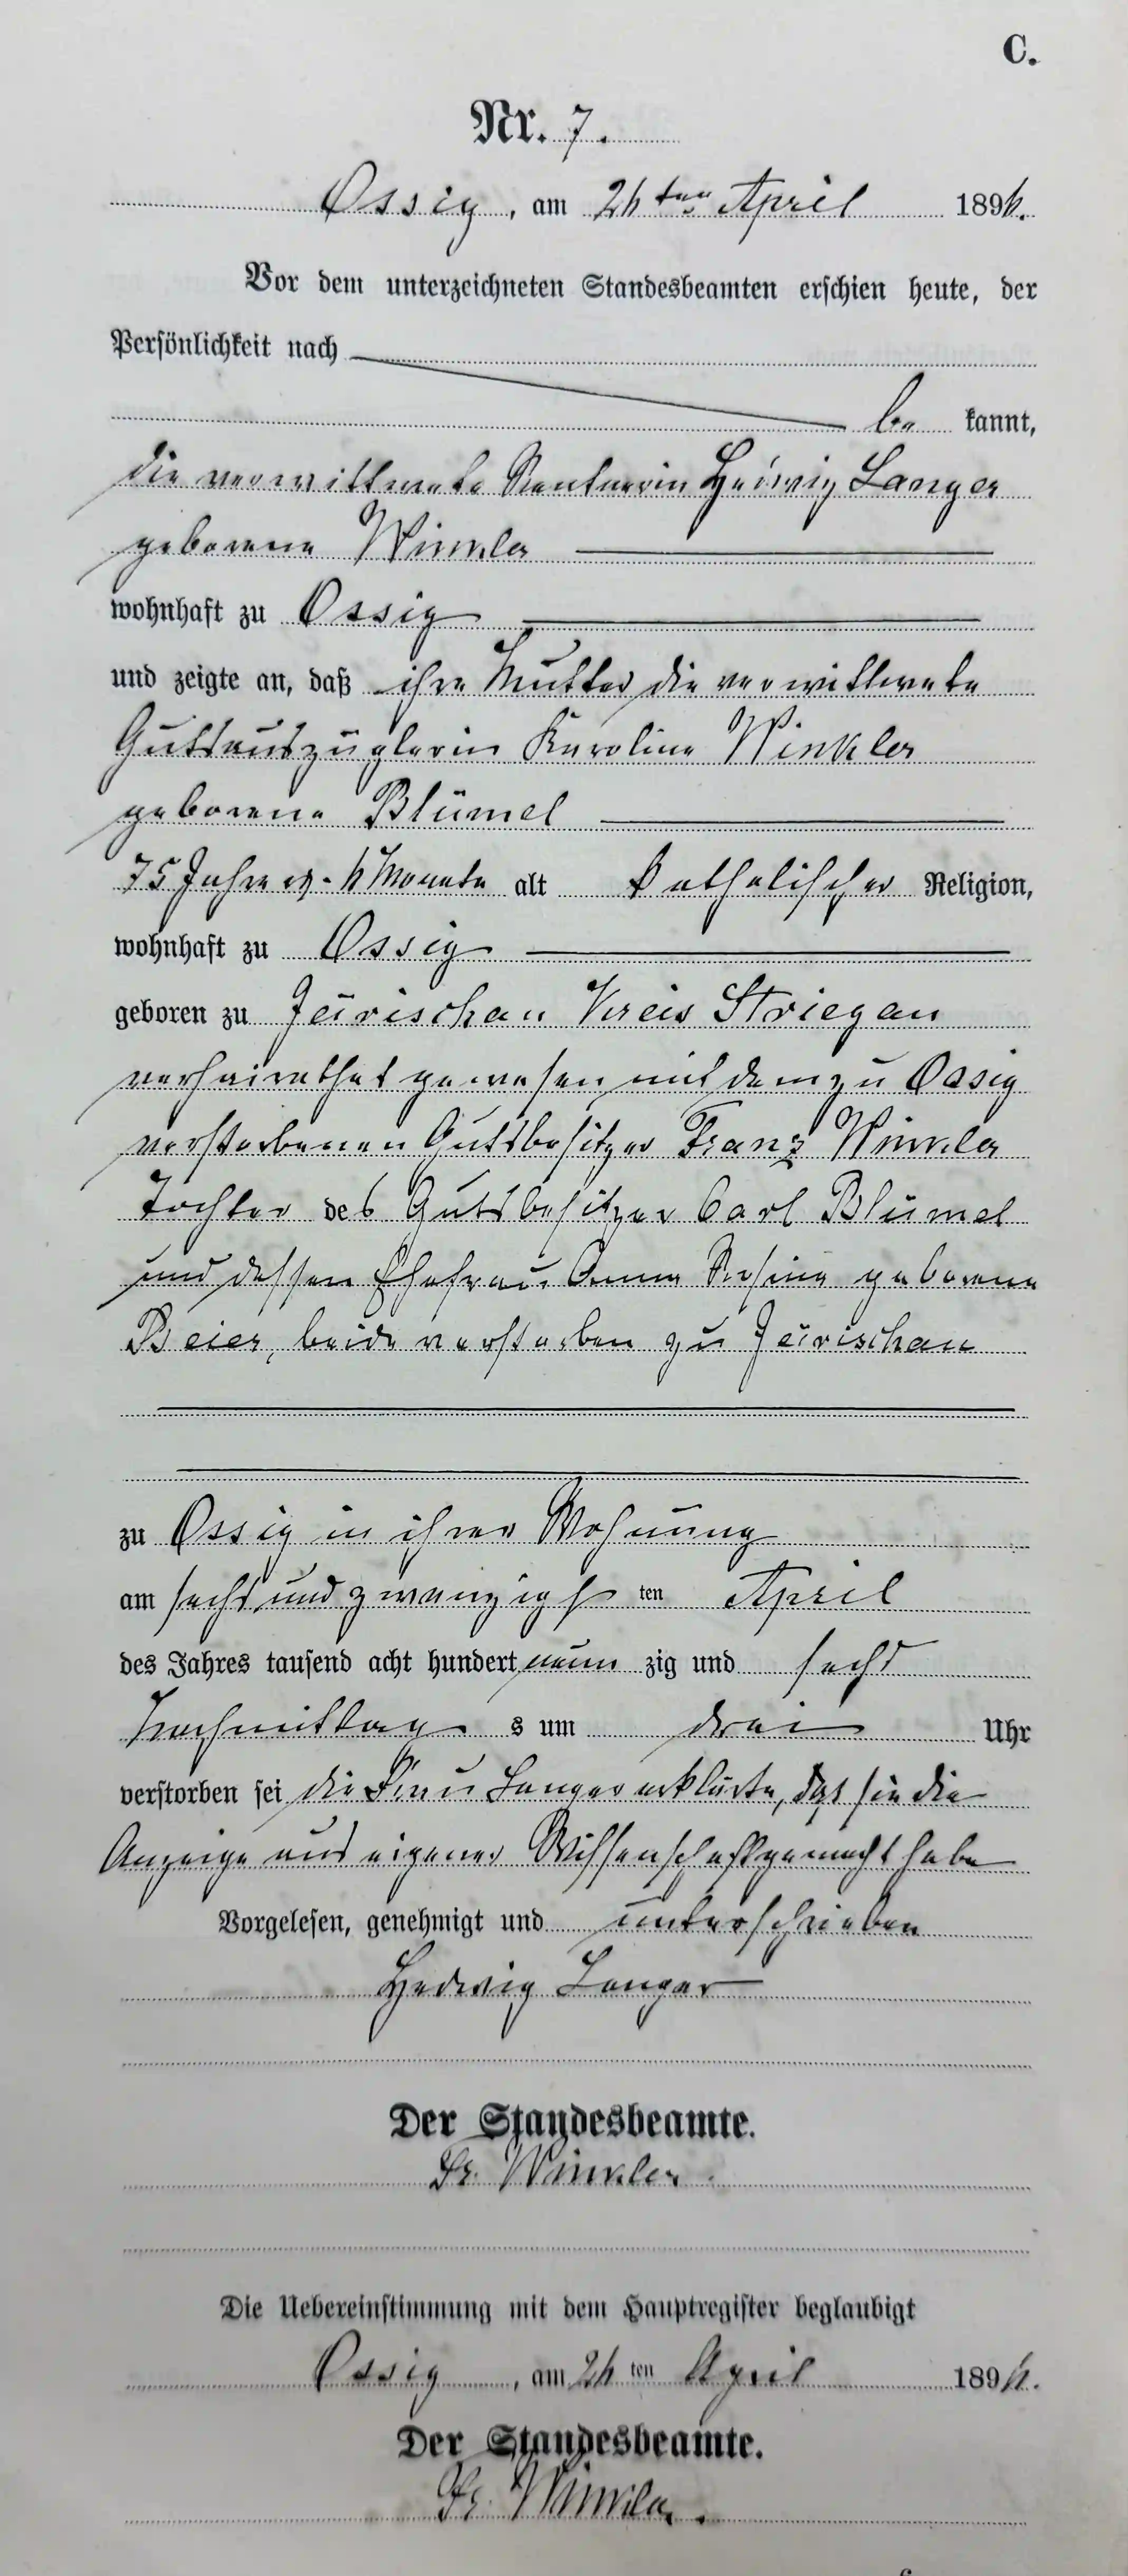 C.
Nr. 7.
Ossig, am 26ten April 1896.
Vor dem unterzeichneten Standesbeamten erschien heute, der
Persönlichkeit nach
be kannt,
die verwittwete Rentnerin Hedwig Langer
geborene Winkler
wohnhaft zu Ossig
und zeigte an, daß ihre Mutter die verwittwete
Gutsauszüglerin Karoline Winkler
geborene Blümel
75 Jahre 6 Monate alt katholischer Religion,
wohnhaft zu Ossig
geboren zu Järischau Kreis Striegau
verheirathet gewesen mit dem zu Ossig
verstorbenen Gutsbesitzer Franz Winkler
Tochter des Gutsbesitzer Carl Blümel
und dessen Ehefrau Anna Rosina geborene
Beier, beide verstorben zu Järischau
zu Ossig in ihrer Wohnung
am sechs und zwanzigsten April
des Jahres tausend acht hundert neun zig und sechs
Nachmittag s um drei Uhr
verstorben sei die Frau Langer erklärte, daß sie die
Anzeige aus eigener Wissenschaft gemacht habe
Vorgelesen, genehmigt und unterschrieben
Hedwig Langer
Der Standesbeamte.
Fr. Winkler.
Die Uebereinstimmung mit dem Hauptregister beglaubigt
Ossig, am 26ten April 1896.
Der Standesbeamte.
Fr. Winkler.